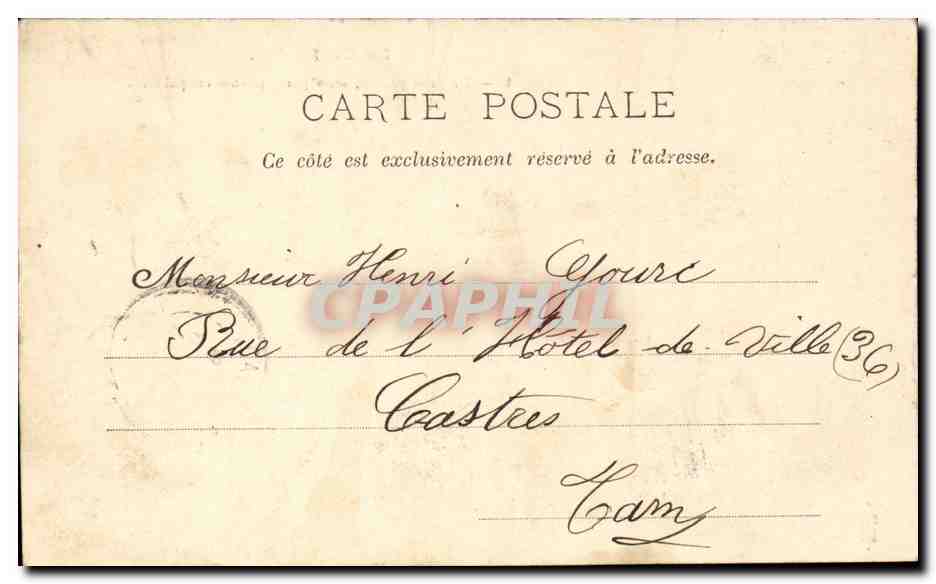 CARTE POSTALE
Ce côté est exclusivement réservé à l'adresse.
Monsieur Henri Gourc
CPAPHIL
Rue de l'Hôtel de Ville (36)
Castres
Tarn